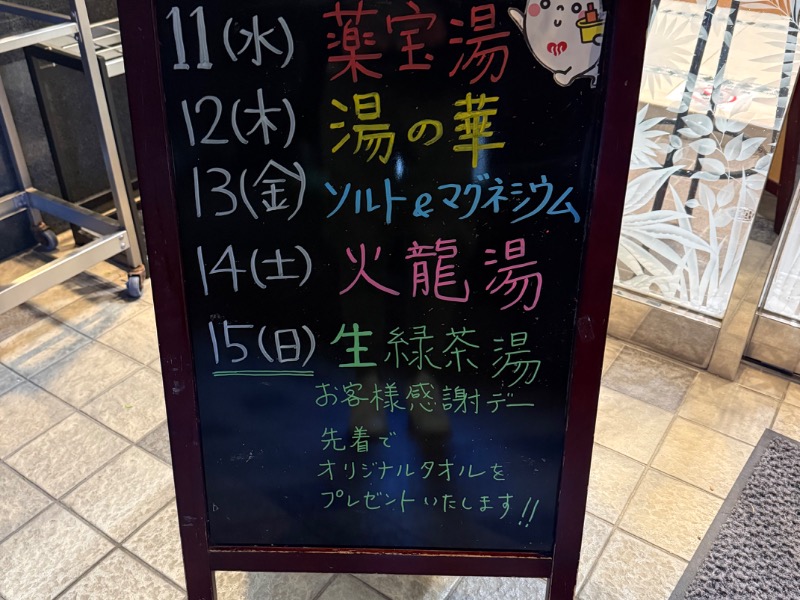 11(水) 薬宝湯
12(木) 湯の華
13(金) ソルト&マグネシウム
14(土) 火龍湯
15(日) 生緑茶湯
お客様感謝デー
先着で
オリジナルタオルを
プレゼントいたします!!